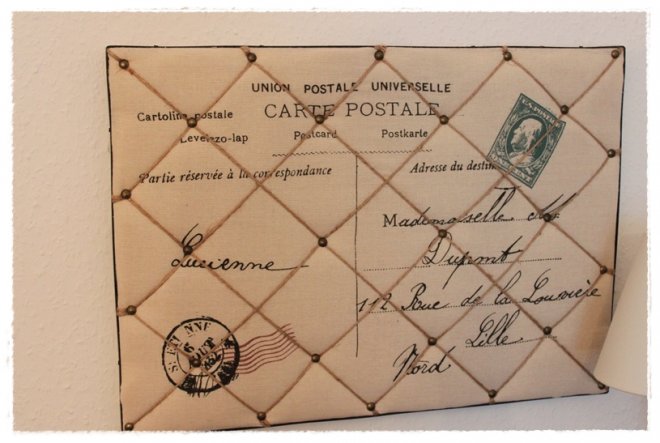 UNION POSTALE UNIVERSELLE
CARTE POSTALE
Cartolina postale
Postcard
Postkarte
Levelezo-lap
Partie réservée à la correspondance
Adresse du destin
Mademoiselle M.
Dupont
Lucienne
112 Rue de la Louvière
Lille
Nord
6